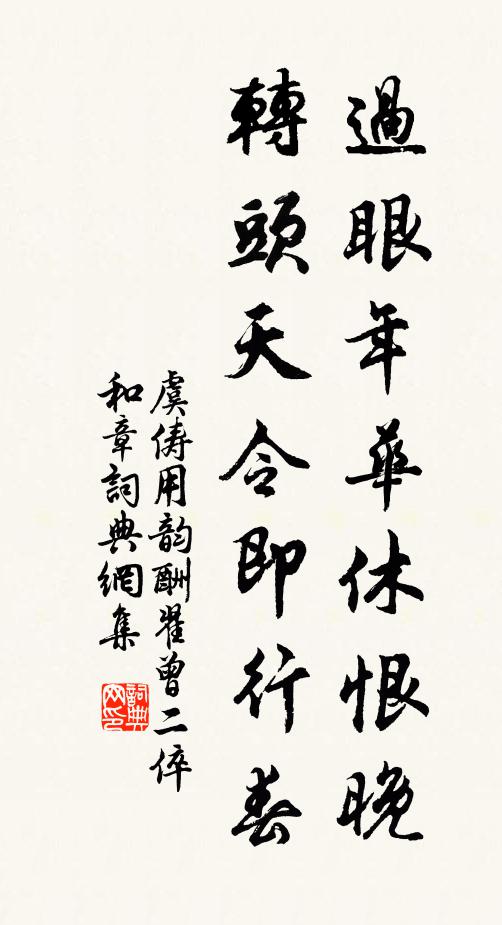 過眼年華休恨晚
轉頭天令即行春
虞儔用韵酬翟曾二倅
和章詞典網集
詞典
网印